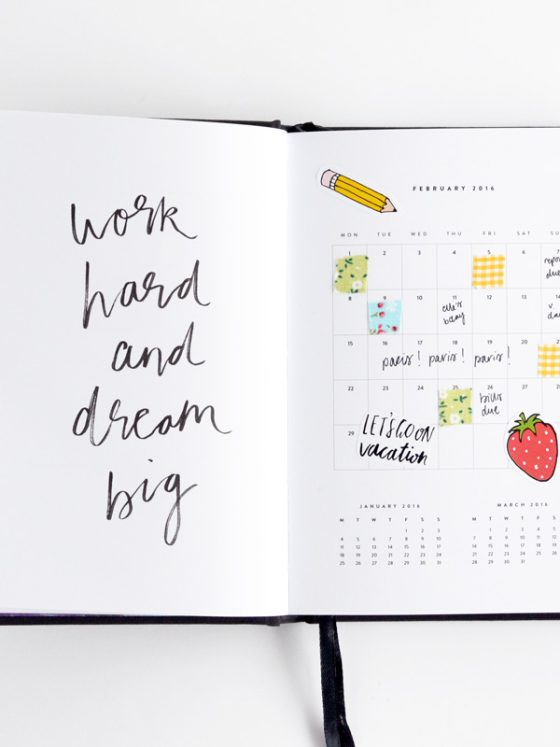 work
hard
and
dream
big
FEBRUARY 2016
MON TUE WED THU FRI SAT SU
1 2 3 4 5 6 7
repo
due
8 9 10 11 12 13 14
elle's
bday
v.
da
15 16 17 18 19 20 2
paris! paris! paris!
22 23 24 25 26 27 2
bills
due
29
LET'S GO ON
vacation
JANUARY 2016
M T W T F S S
1 2 3
4 5 6 7 8 9 10
11 12 13 14 15 16 17
18 19 20 21 22 23 24
25 26 27 28 29 30 31
MARCH 2016
M T W T F S
1 2 3 4 5
7 8 9 10 11 12
14 15 16 17 18 19
21 22 23 24 25 26
28 29 30 31